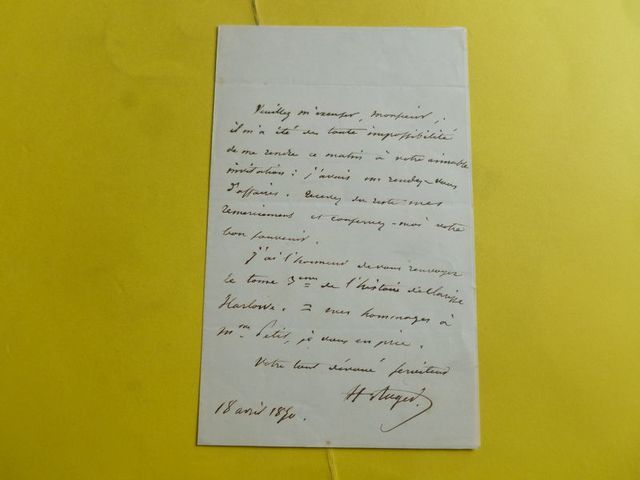 Veuillez m'excuser, monsieur ;
il m'a été de toute impossibilité
de me rendre ce matin à votre aimable
invitation : j'avais un rendez-vous
d'affaires. Recevez du reste mes
remerciement et conservez-moi votre
bon souvenir.
J'ai l'honneur de vous renvoyer
le tome 3eme de l'histoire de Clarisse
Harlowe. = mes hommages à
Mme Petit, je vous en prie.
Votre tout dévoué serviteur
H Auger.
18 avril 1850.